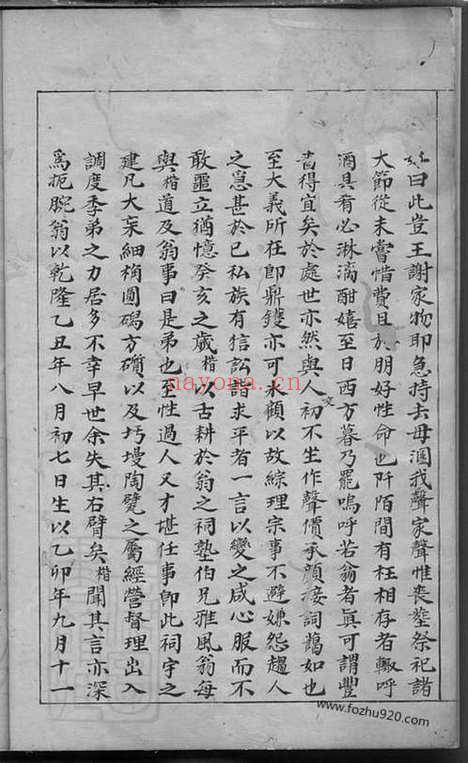 曰此豈王謝家物耶急持去毋溷我聲家聲惟喪塟祭祀諸
大節從未嘗惜費且於朋好性命也阡陌間有枉相存者輙呼
酒具肴必淋漓酣嬉至日西方暮乃罷嗚呼若翁者眞可謂豐
嗇得宜矣於處世亦然與人初不生作聲價承顔接詞藹如也
文
至大義所在卽鼎鑊亦可未顧以故綜理宗事不避嫌怨趨人
之急甚於已私族有狺訟詣求平者一言以變之咸心服而不
敢噩立猶憶癸亥之歲楷以古耕於翁之祠塾伯兄雅風翁每
與楷道及翁事曰是弟也至性過人又才堪任事卽此祠宇之
建凡大杗細桷圓碣方礩以及圬墁陶甓之屬經營督理出入
調度季弟之力居多不幸早世余失其右臂矣楷聞其言亦深
爲扼腕翁以乾隆乙丑年八月初七日生以乙卯年九月十一
nayona.cn
www.fozhu920.com